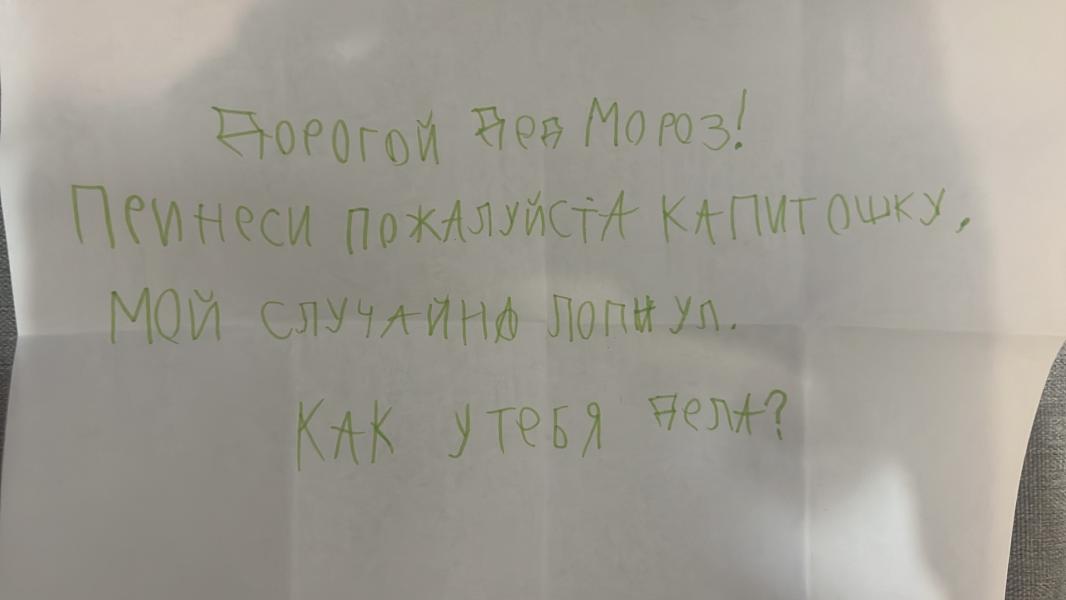 Дорогой Дед Мороз!
Принеси пожалуйста капитошку,
мой случайно лопнул.
Как у тебя дела?